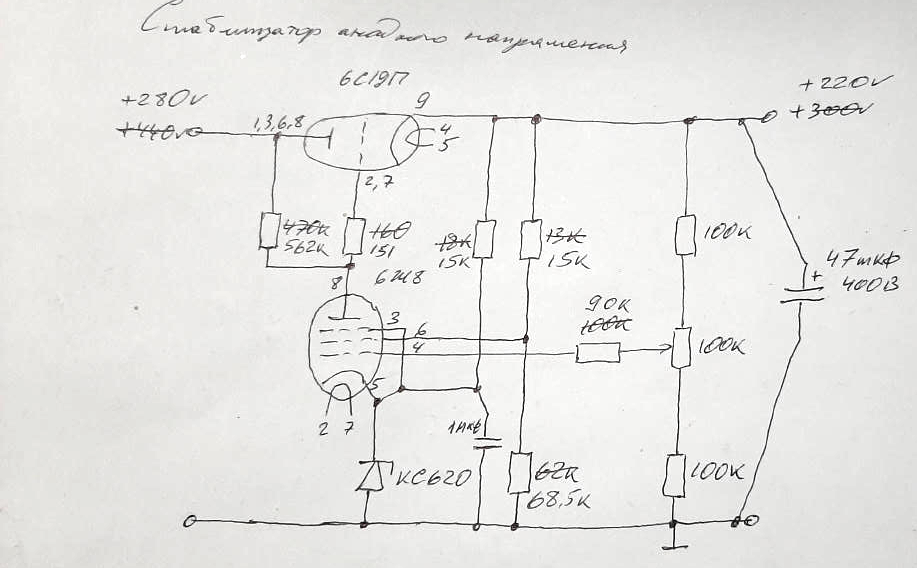 Стабилизатор анодного напряжения
6С19П
+280v
+440v
1,3,6,8
9
4
5
+220v
+300v
2,7
470к
562к
160
151
18к
15к
13к
15к
100к
47мкф
400В
8
6Ж8
3
6
4
90к
100к
100к
5
2 7
1мкф
КС620
62к
68,5к
100к